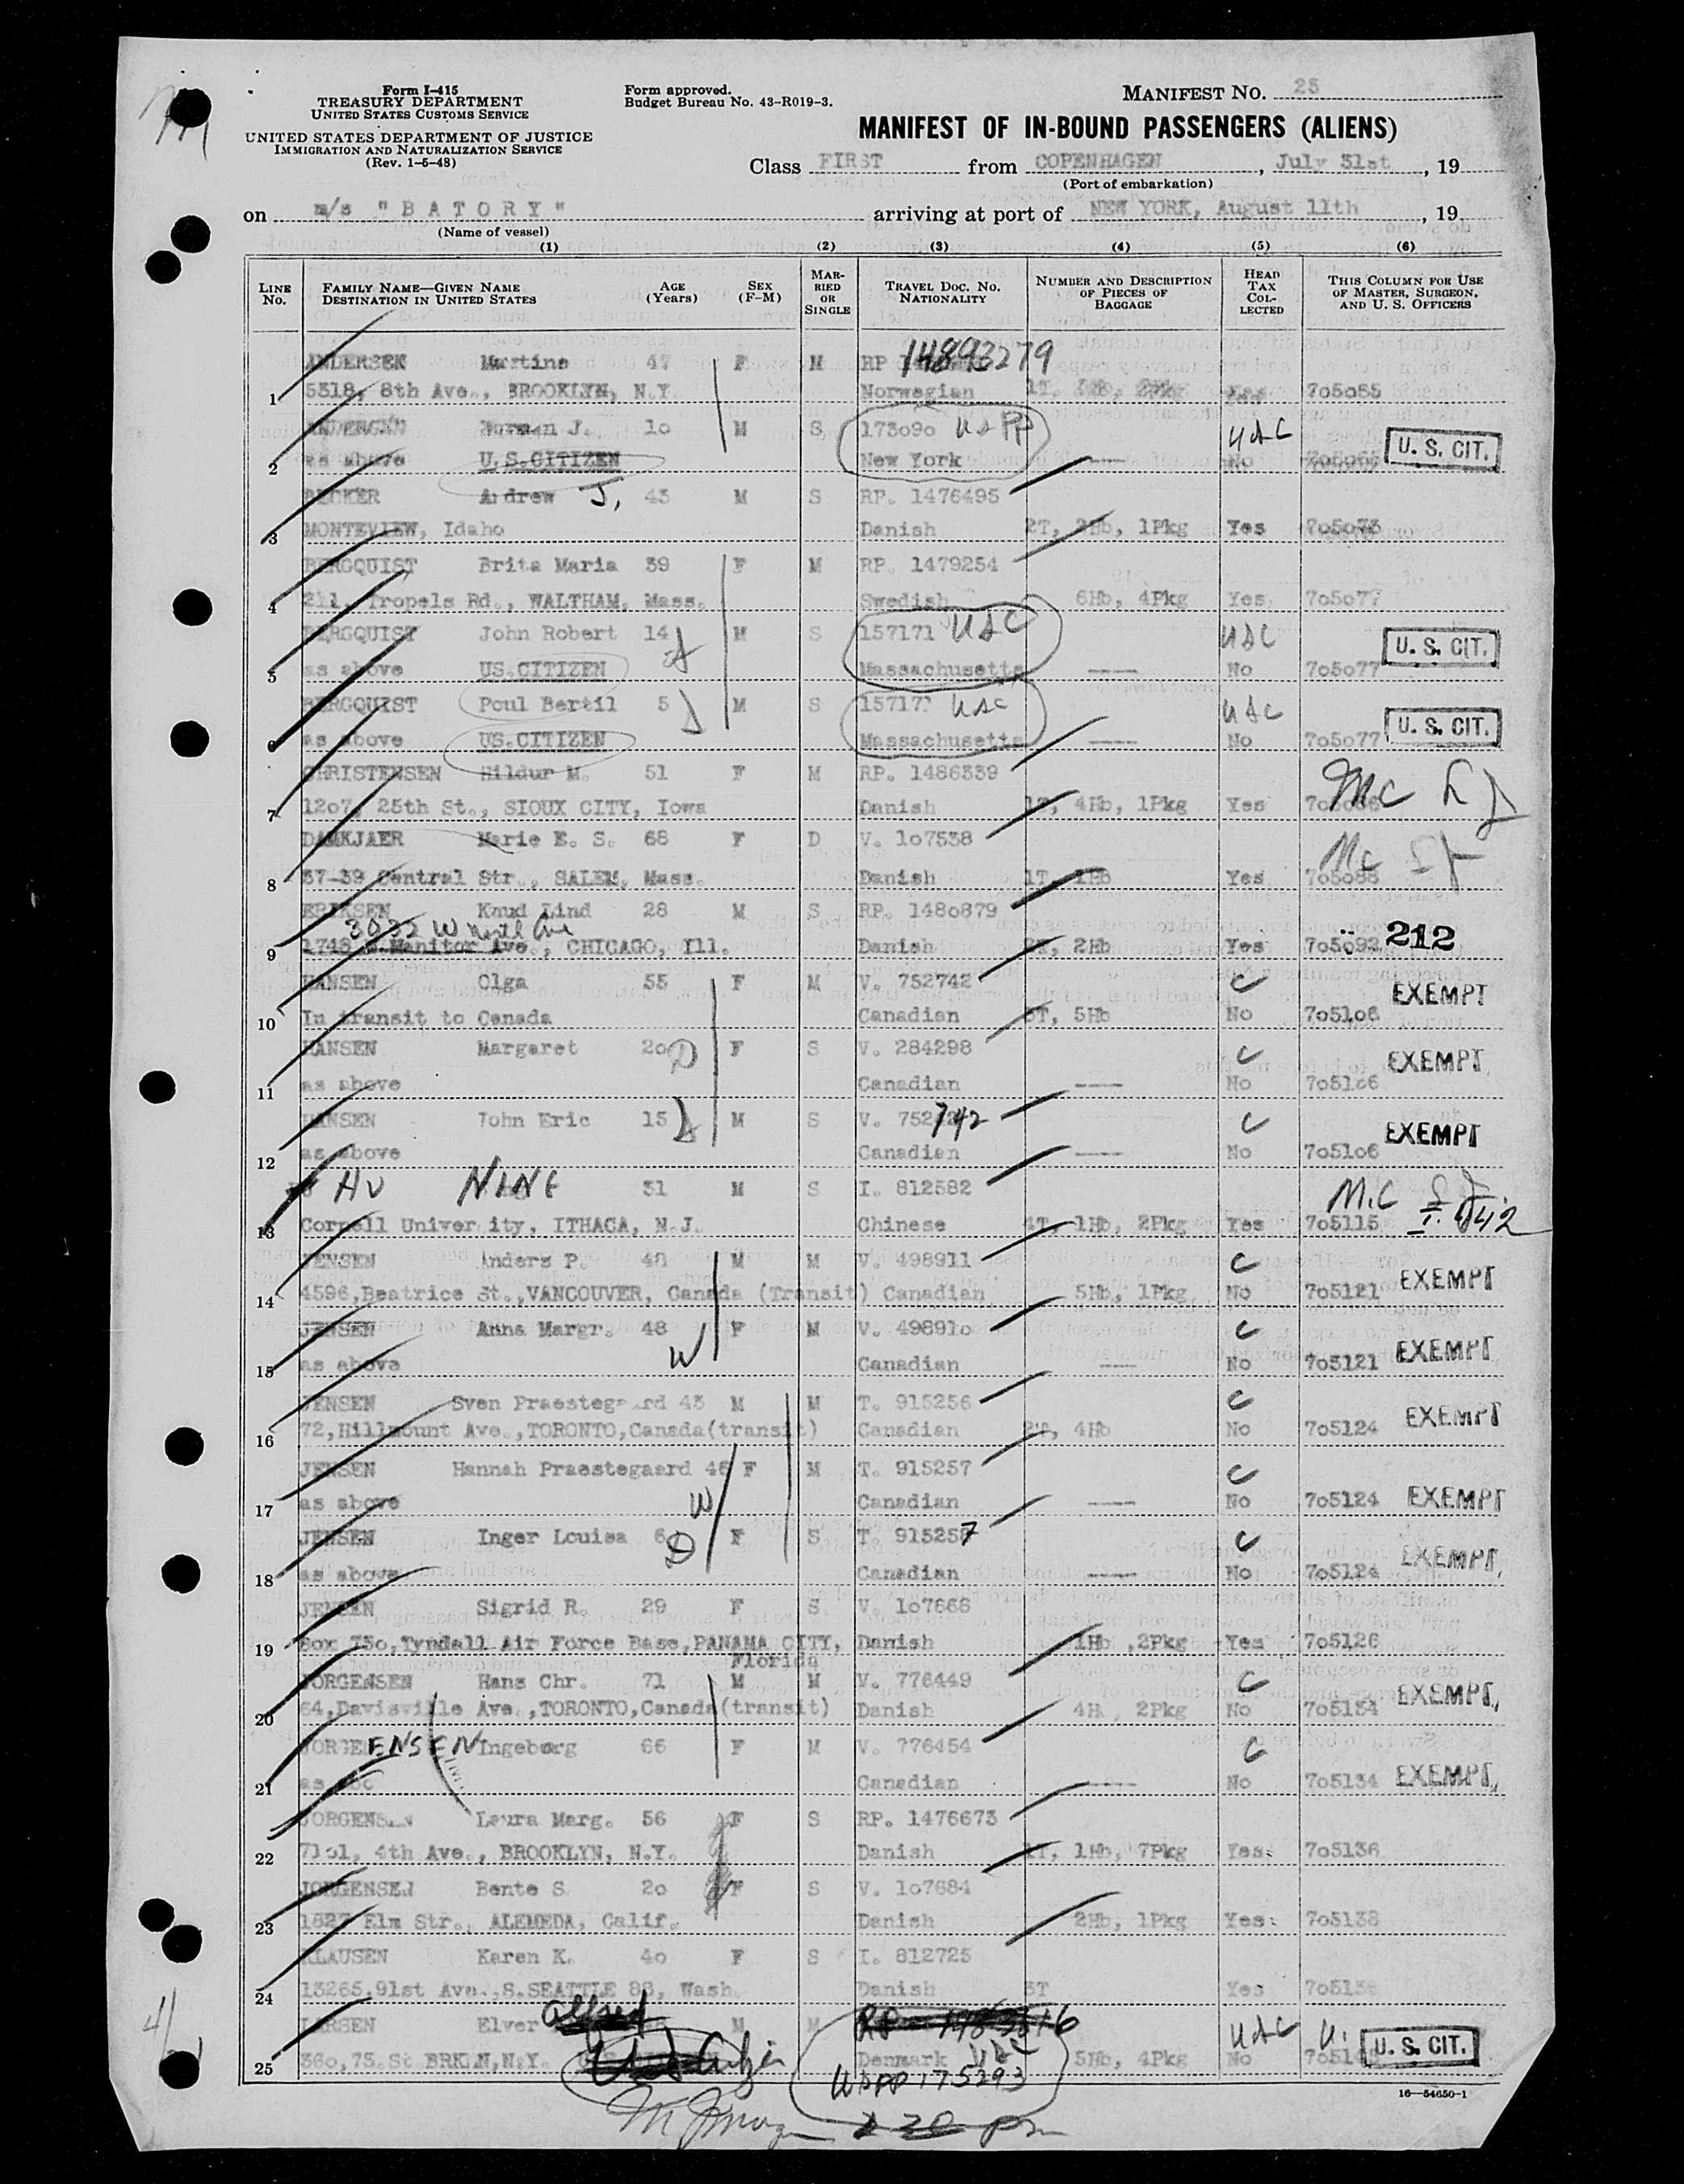 Form I-415
TREASURY DEPARTMENT
UNITED STATES CUSTOMS SERVICE
UNITED STATES DEPARTMENT OF JUSTICE
IMMIGRATION AND NATURALIZATION SERVICE
(Rev. 1-5-48)
Form approved.
Budget Bureau No. 43-R019-3.
MANIFEST NO. 25
MANIFEST OF IN-BOUND PASSENGERS (ALIENS)
Class FIRST from COPENHAGEN, July 31st, 19
(Port of embarkation)
on m/s "BATORY" arriving at port of NEW YORK, August 11th, 19
(Name of vessel)
(1) (2) (3) (4) (5) (6)
LINE NO. FAMILY NAME—GIVEN NAME DESTINATION IN UNITED STATES AGE (Years) SEX (F-M) MARRIED OR SINGLE TRAVEL DOC. NO. NATIONALITY NUMBER AND DESCRIPTION OF PIECES OF BAGGAGE HEAD TAX COLLECTED THIS COLUMN FOR USE OF MASTER, SURGEON, AND U. S. OFFICERS
ANDERSEN Martine 47 F M RP 14893279
1 5318, 8th Ave., BROOKLYN, N.Y. Norwegian Yes 705055
ANDERSEN Norman J. 10 M S 173090 US PP
2 as above U.S.CITIZEN New York No USC U. S. CIT.
BECKER Andrew J. 43 M S RP. 1476495
3 MONTEVIEW, Idaho Danish 2T, 2Hb, 1Pkg Yes 705073
BERGQUIST Brita Maria 39 F M RP. 1479254
4 211, Tropels Rd., WALTHAM, Mass. Swedish 6Hb, 4Pkg Yes 705077
BERGQUIST John Robert 14 M S 157171 USC USC
5 as above US.CITIZEN Massachusetts No 705077 U. S. CIT.
BERGQUIST Poul Bertil 5 M S 15717 USC USC
6 as above US.CITIZEN Massachusetts No 705077 U. S. CIT.
CHRISTENSEN Hildur M. 51 F M RP. 1486339
7 1207, 25th St., SIOUX CITY, Iowa Danish 1T, 4Hb, 1Pkg Yes MC
DAMKJAER Marie E. S. 68 F D V. 107538
8 37-39 Central Str., SALEM, Mass. Danish 1T, 1Hb Yes 705088 MC
ERIKSEN Knud Lind 28 M S RP. 1480879
3032 W North Ave
9 1748 Manitor Ave., CHICAGO, Ill. Danish 2Hb Yes 705092 212
HANSEN Olga 55 F M V. 752742 C
10 In transit to Canada Canadian 5Hb No 705106 EXEMPT
HANSEN Margaret 20 D F S V. 284298 C
11 as above Canadian No 705106 EXEMPT
HANSEN John Eric 15 M S V. 752742 C
12 as above Canadian No 705106 EXEMPT
HU NING 31 M S I. 812582 M.C
13 Cornell University, ITHACA, N.J. Chinese 4T, 1Hb, 2Pkg Yes 705115
JENSEN Anders P. 48 M M V. 498911 C
14 4596,Beatrice St.,VANCOUVER, Canada (Transit) Canadian 5Hb, 1Pkg No 705121 EXEMPT
JENSEN Anna Margr. 48 W F M V. 498910 C
15 as above Canadian No 705121 EXEMPT
JENSEN Sven Praestegaard 43 M M T. 915256 C
16 72,Hillmount Ave.,TORONTO,Canada(transit) Canadian 2T, 4Hb No 705124 EXEMPT
JENSEN Hannah Praestegaard 46 W F M T. 915257 C
17 as above Canadian No 705124 EXEMPT
JENSEN Inger Louisa 6 D F S T. 915257 C
18 as above Canadian No 705124 EXEMPT
JENSEN Sigrid R. 29 F S V. 107668
19 Box 730,Tyndall Air Force Base,PANAMA CITY, Florida Danish 1Hb ,2Pkg Yes 705126
JORGENSEN Hans Chr. 71 M M V. 776449 C
20 64,Davisville Ave.,TORONTO,Canada(transit) Danish 2Pkg No 705134 EXEMPT
JORGENSEN Ingeborg 66 F M V. 776454 C
21 Canadian No 705134 EXEMPT
JORGENSEN Laura Marg. 56 F S RP. 1476673
22 7101, 4th Ave., BROOKLYN, N.Y. Danish 1T, 1Hb, 7Pkg Yes 705136
JORGENSEN Bente S. 20 F S V. 107684
23 1827 Elm Str., ALEMEDA, Calif. Danish 2Hb, 1Pkg Yes 705138
KLAUSEN Karen K. 40 F S I. 812725
24 13265,91st Ave.,S.SEATTLE 88, Wash. Danish 3T Yes 705139
LARSEN Elver Alfred M M USC
25 360,75.St BRKLN,N.Y. Denmark 5Hb, 4Pkg No U. S. CIT.
USPP 175293
16—54650-1